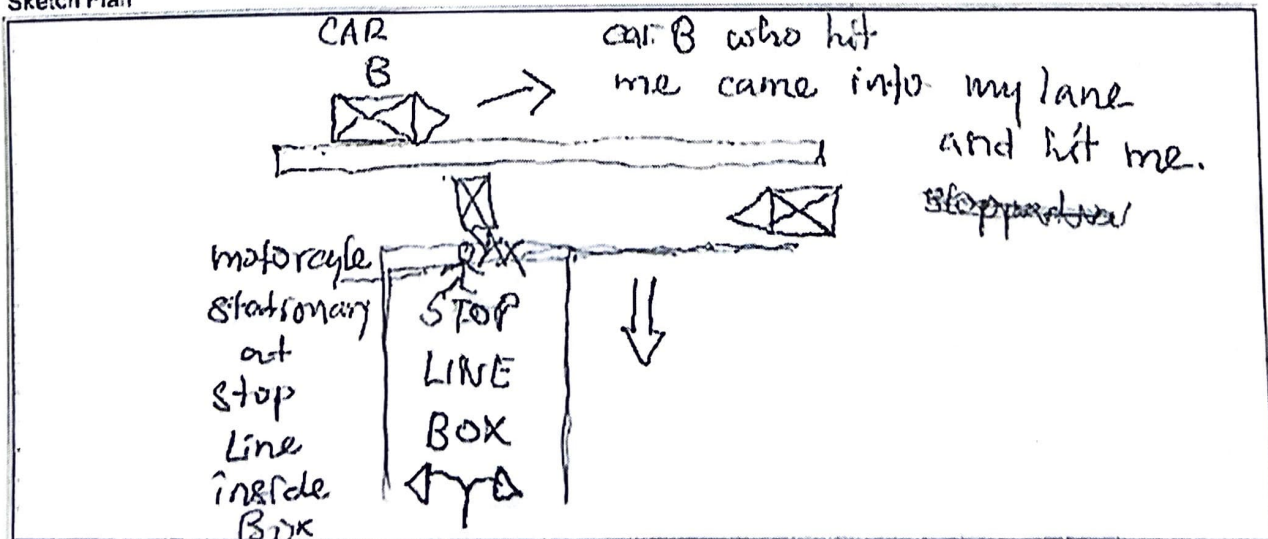 Sketch Plan
CAR
B
car B who hit
me came into my lane
and hit me.
motorcyle
stationary
at
stop
Line
inside
Box
STOP
LINE
BOX